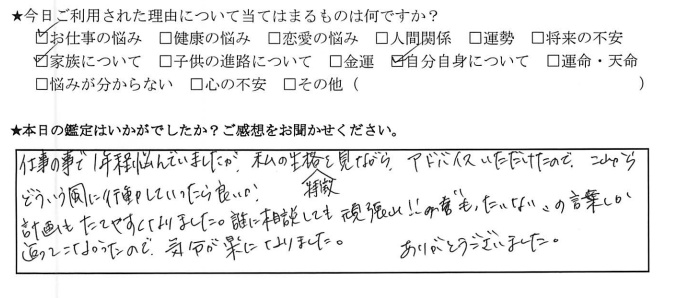 ★今日ご利用された理由について当てはまるものは何ですか？
☑お仕事の悩み □健康の悩み □恋愛の悩み □人間関係 □運勢 □将来の不安
☑家族について □子供の進路について □金運 ☑自分自身について □運命・天命
□悩みが分からない □心の不安 □その他（ ）
★本日の鑑定はいかがでしたか？ご感想をお聞かせください。
仕事の事で1年程悩んでいましたが、私の生格を見ながら、アドバイスいただけたので、これから
特徴
どういう風に行動していったら良いか、
計画もたてやすくなりました。誰に相談しても 頑張れ!! の言葉しか
返ってこなかったので、気分が楽になりました。 ありがとうございました。